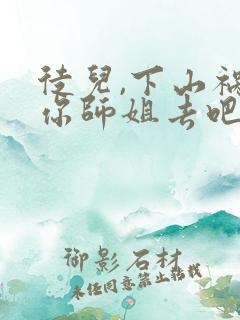 徒兒,下山禍
你師姐去吧
御影石材
未经同意禁止转载